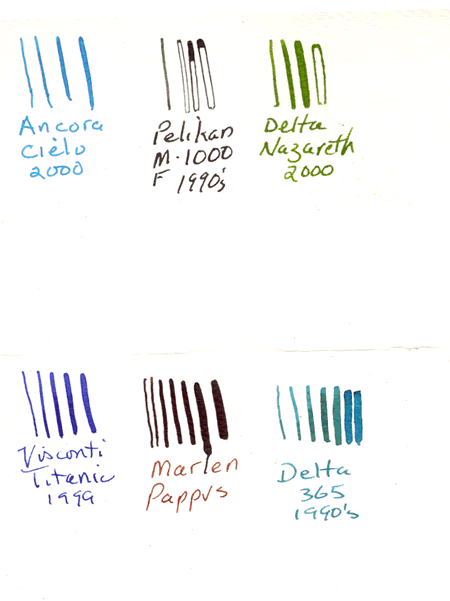 Ancora
Cielo
2000
Pelikan
M.1000
F 1990's
Delta
Nazareth
2000
Visconti
Titanic
1999
Marlen
Pappvs
Delta
365
1990's